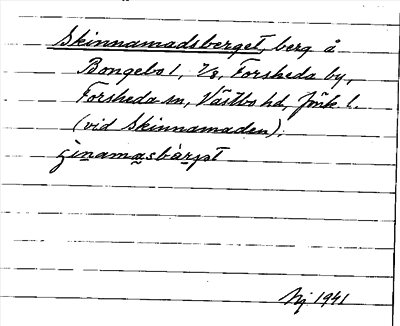 Skinnamadsberget, berg å
Bongebo 1, 7/8, Forsheda by,
Forsheda sn, Västbo hd, Jönk. l.
(vid Skinnamaden).
Nj 1941